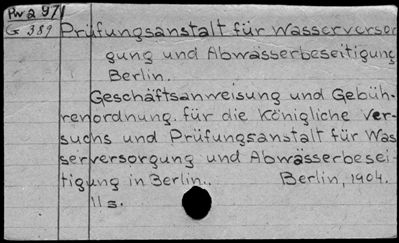 Pw a 971
G 389 Prüfungsanstalt für Wasserversor
gung und Abwässerbeseitigung
Berlin.
Geschäftsanweisung und Gebüh-
renordnung für die Königliche Ver-
suchs und Prüfungsanstalt für Was
serversorgung und Abwässerbesei-
tigung in Berlin.. Berlin, 1904.
11 s.